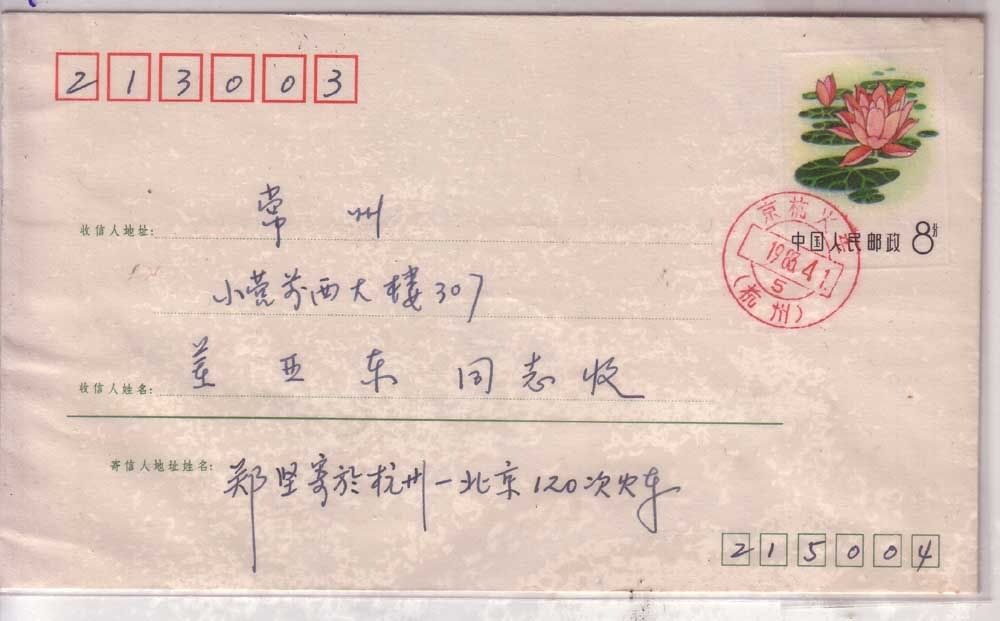 213003
中国人民邮政 8分
京杭火车
1986.4.1
5
(杭州)
收信人地址: 常州
小营前西大楼307
收信人姓名: 董亚东 同志收
寄信人地址姓名: 郑坚寄於杭州—北京120次火车
215004